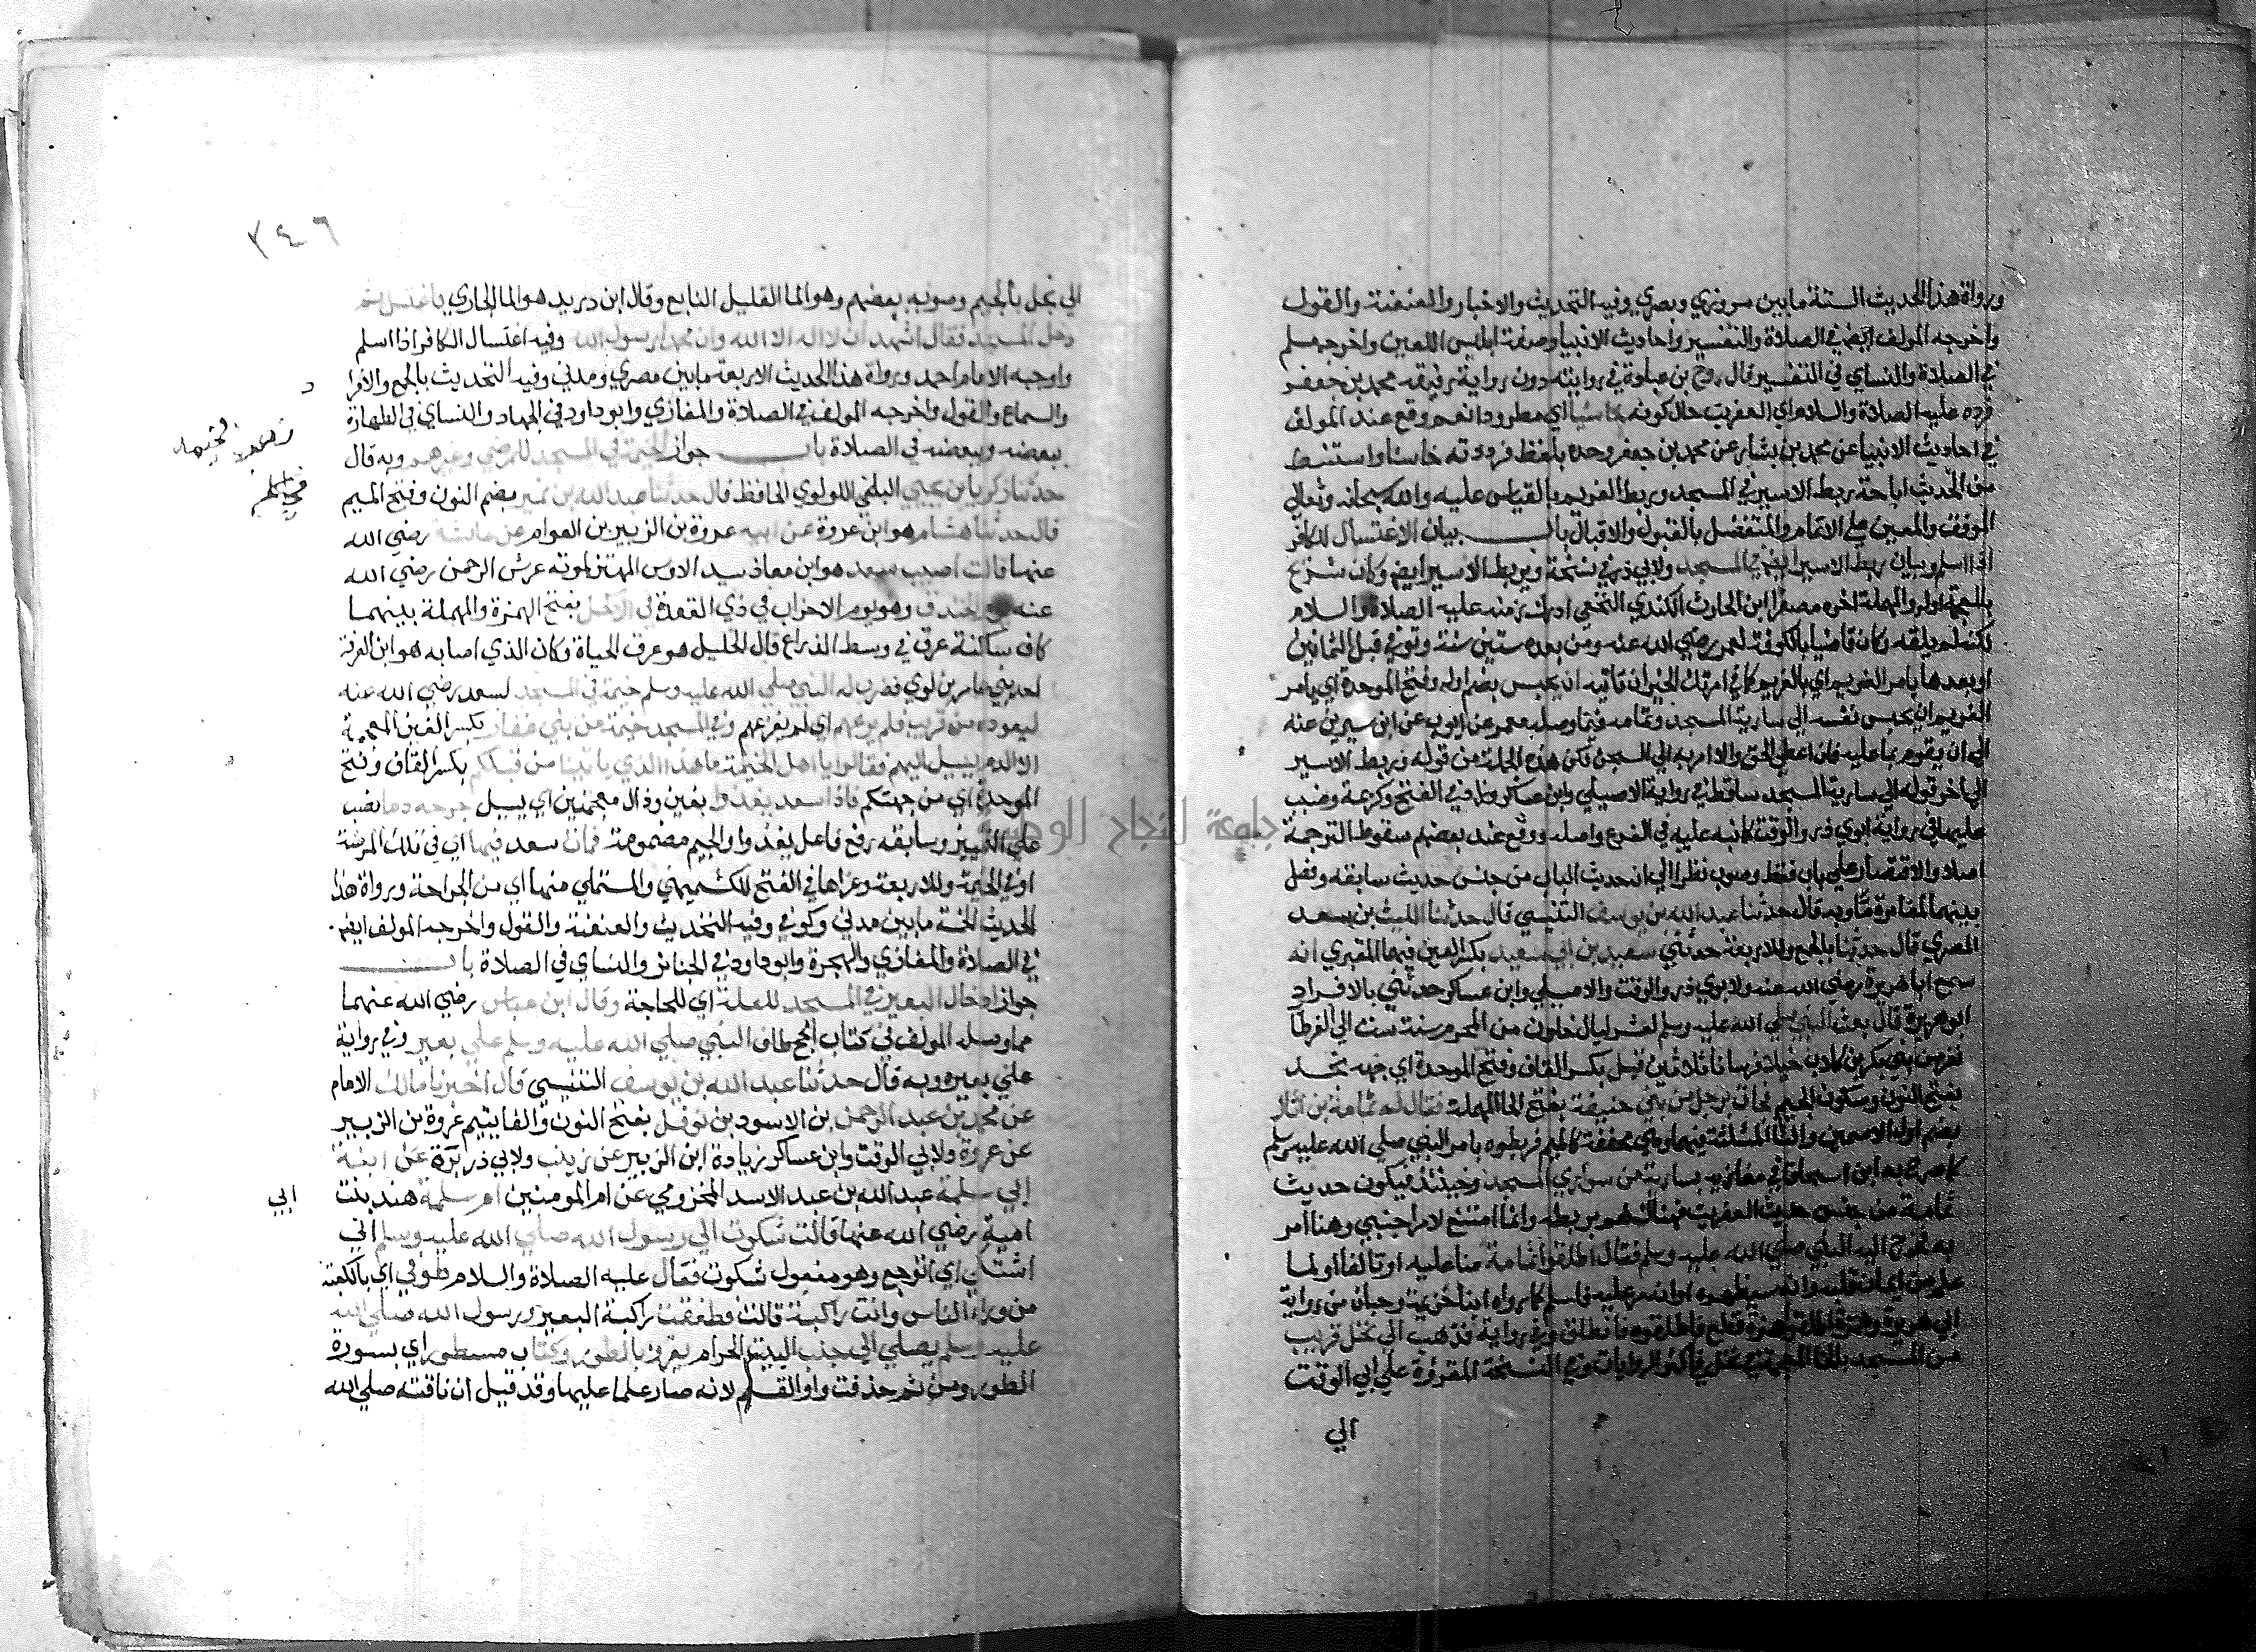 ورواة هذا الحديث الستة ما بين مروزي وبصري وفيه التحديث والاخبار والعنعنة والقول
واخرجه المولف ايضا في الصلاة والتفسير واحاديث الانبيا وصفة ابليس اللعين واخرجه مسلم
في الصلاة والنساي في التفسير قال روح بن عبادة في روايته دون رواية رفيقه محمد بن جعفر
فرده عليه الصلاة والسلام اي العفريت حال كونه خاسئا اي مطرودا نعم وقع عند المولف
في احاديث الانبيا عن محمد بن بشار عن محمد بن جعفر وحده بلفظ فرددته خاسئا واستنبط
من الحديث اباحة ربط الاسير في المسجد وربط الغريم بالقياس عليه والله سبحانه وتعالي
الموفق والمعين علي الاتمام والمتفضل بالقبول والاقبال باب بيان الاغتسال للكافر
اذا اسلم وبيان ربط الاسير ايضا في المسجد ولابي ذر في نسخة ويربط الاسير ايضا وكان شريح
بالمعجمة اوله والمهملة اخره مصغرا ابن الحارث الكندي النخعي ادرك زمنه عليه الصلاة والسلام
لكنه لم يلقه وكان قاضيا بالكوفة لعمر رضي الله عنه ومن بعده ستين سنة وتوفي قبل الثمانين
او بعدها يامر الغريم اي بالغريم كما في امرتك الخير ان تاتيه ان يحبس بضم اوله وفتح الموحدة اي يامر
الغريم ان يحبس نفسه الي سارية المسجد وتمامه فيما وصله معمر عن ايوب عن ابن سيرين عنه
الي ان يقوم بما عليه فان اعطي الحق والا امر به الي السجن لكن هذه الجملة من قوله وربط الاسير
الي اخر قوله الي سارية المسجد ساقطة في رواية الاصيلي وابن عساكر وزاد في الفتح وكريمة وضبب
عليها في رواية ابوي ذر والوقت كما نبه عليه في الفرع واصله ووقع عند بعضهم سقوط الترجمة
اصلا والاقتصار علي باب فقط وصوب نظرا الي ان حديث الباب من جنس حديث سابقه وفصل
بينهما لمغايرة ما وبه قال حدثنا عبد الله بن يوسف التنيسي قال حدثنا الليث بن سعد
المصري قال حدثنا بالجمع وللاربعة حدثني سعيد بن ابي سعيد بكسر العين فيهما المقبري انه
سمع ابا هريرة رضي الله عنه ولابوي ذر والوقت والاصيلي وابن عساكر حدثني بالافراد
ابو هريرة قال بعث النبي صلي الله عليه وسلم لعشر ليال خلون من المحرم سنة ست الي القرطا
نفر من بني بكر بن كلاب خيلا فرسانا ثلاثين قبل بكسر القاف وفتح الموحدة اي جهة نجد
بفتح النون وسكون الجيم فجات برجل من بني حنيفة بفتح الحا المهملة فقال له ثمامة بن اثال
بضم اول الاسمين والثا المثلثة فيهما وهي مخففة كالميم فربطوه بامر النبي صلي الله عليه وسلم
كما صرح به ابن اسحاق في مغازيه بسارية من سواري المسجد وحينئذ فيكون حديث
ثمامة من جنس حديث العفريت فهناك هم بربطه وانما امتنع لامر اجنبي وهنا امر
به فخرج اليه النبي صلي الله عليه وسلم فقال اطلقوا ثمامة منا عليه او تالفا او لما
علم من ايمان قلبه وانه سيظهره او انه مر عليه فاسلم كما رواه ابنا خزيمة وحبان من رواية
ابي هريرة وهمزة اطلقوا همزة قطع فاطلقوه فانطلق وفي رواية فذهب الي نخل قريب
من المسجد بالخا المعجمة في نخل في اكثر الروايات وفي النسخة المقروة علي ابي الوقت
الي
٣٤٦
الي نجل بالجيم وصوبه بعضهم وهو الما القليل النابع وقال ابن دريد هو الما الجاري فاغتسل ثم
دخل المسجد فقال اشهد ان لا اله الا الله وان محمدا رسول الله وفيه اغتسال الكافر اذا اسلم
واوجبه الامام احمد ورواة هذا الحديث الاربعة ما بين مصري ومدني وفيه التحديث بالجمع والافرا
د
والسماع والقول واخرجه المولف في الصلاة والمغازي وابو داود في الجهاد والنساي في الطهارة
ببعضه وببعضه في الصلاة باب جواز الخيمة في المسجد للمرضي وغيرهم وبه قال
حدثنا زكريا بن يحيي البلخي اللولوي الحافظ قال حدثنا عبد الله بن نمير بضم النون وفتح الميم
قال حدثنا هشام هو ابن عروة عن ابيه عروة بن الزبير بن العوام عن عائشة رضي الله
عنها قالت اصيب سعد هو ابن معاذ سيد الاوس المهتز لموته عرش الرحمن رضي الله
عنه يوم الخندق وهو يوم الاحزاب في ذي القعدة في الاكحل بفتح الهمزة والمهملة بينهما
كاف ساكنة عرق في وسط الذراع قال الخليل هو عرق الحياة وكان الذي اصابه هو ابن العرقة
احد بني عامر بن لوي فضرب له النبي صلي الله عليه وسلم خيمة في المسجد لسعد رضي الله عنه
ليعوده من قريب فلم يرعهم اي لم يفزعهم وفي المسجد خيمة من بني غفار بكسر الغين المعجمة
الا الدم يسيل اليهم فقالوا يا اهل الخيمة ما هذا الذي ياتينا من قبلكم بكسر القاف وفتح
الموحدة اي من جهتكم فاذا سعد يغذو بغين وذال معجمتين اي يسيل جرحه دما نصب
علي التمييز وسابقه رفع فاعل يغذوا والجيم مضمومة فمات سعد فيها اي في تلك المرضة
او في الخيمة وللاربعة وعزاها في الفتح للكشميهني والمستملي منها اي من الجراحة ورواة هذا
الحديث الخمسة ما بين مدني وكوفي وفيه التحديث والعنعنة والقول واخرجه المولف ايضا
في الصلاة والمغازي والهجرة وابو داود في الجنائز والنساي في الصلاة باب
جواز ادخال البعير في المسجد للعلة اي للحاجة وقال ابن عباس رضي الله عنهما
مما وصله المولف في كتاب الحج طاف النبي صلي الله عليه وسلم علي بعير وفي رواية
علي بعيره وبه قال حدثنا عبد الله بن يوسف التنيسي قال اخبرنا مالك الامام
عن محمد بن عبد الرحمن بن الاسود بن نوفل بفتح النون والفا يتيم عروة بن الزبير
عن عروة ولابي الوقت وابن عساكر زيادة ابن الزبير عن زينب ولابي ذر برة عن ابنة
ابي سلمة عبد الله بن عبد الاسد المخزومي عن ام المومنين ام سلمة هند بنت
ابي
امية رضي الله عنها قالت شكوت الي رسول الله صلي الله عليه وسلم اني
اشتكي اي اتوجع وهو مفعول شكوت فقال عليه الصلاة والسلام طوفي اي بالكعبة
من وراء الناس وانت راكبة قالت فطفقت راكبة البعير ورسول الله صلي الله
عليه وسلم يصلي الي جنب البيت الحرام يقرا بالطور وكتاب مسطور اي بسورة
الطور ومن ثم حذفت واو القسم لانه صار علما عليها وقد قيل ان ناقته صلي الله